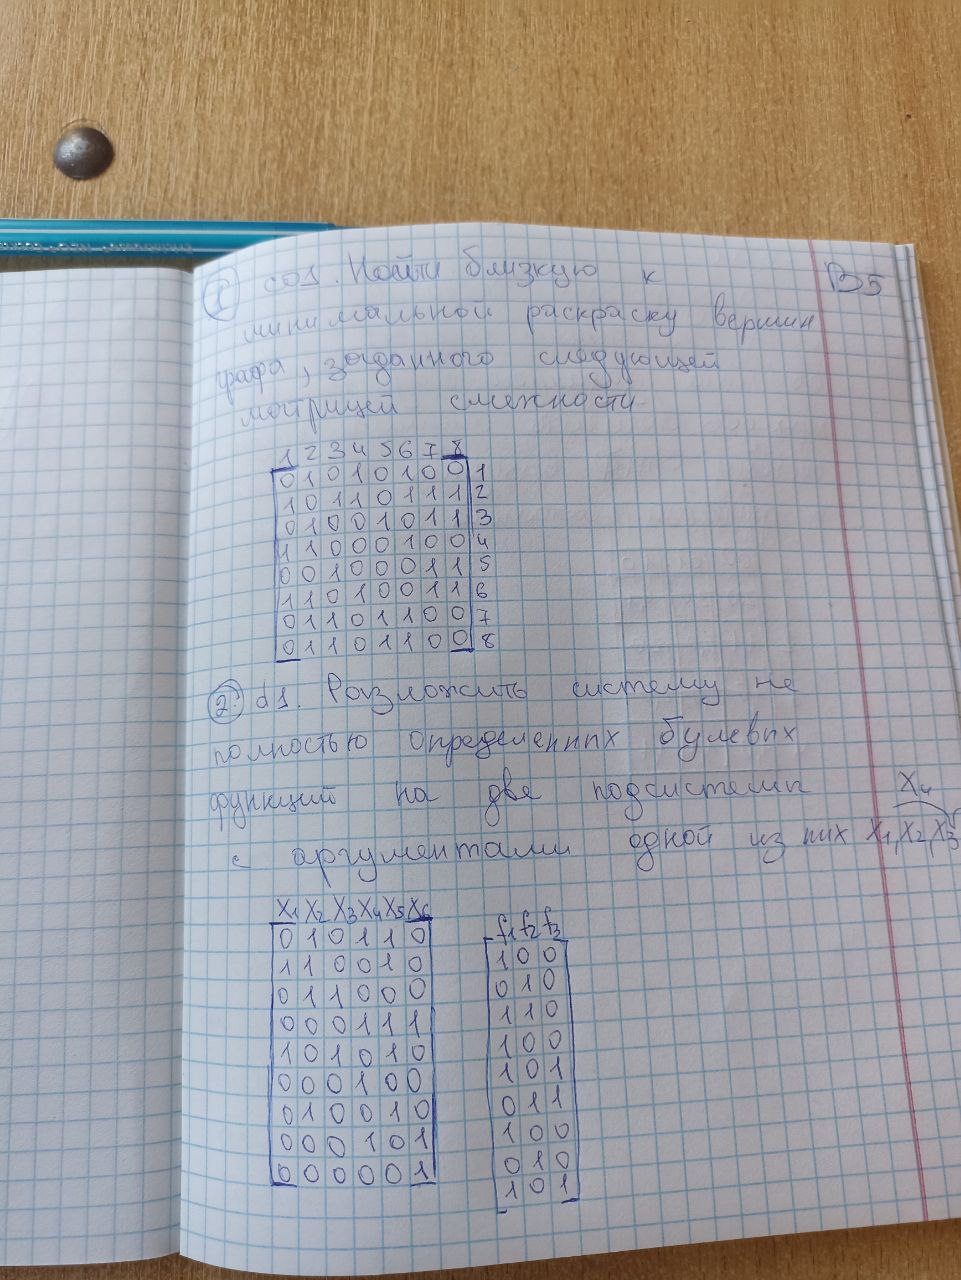 1 c01. Найти близкую к B5
минимальной раскраску вершин
графа, заданного следующей
матрицей смежности
1 2 3 4 5 6 7 8
0 1 0 1 0 1 0 0 1
1 0 1 1 0 1 1 1 2
0 1 0 0 1 0 1 1 3
1 1 0 0 0 1 0 0 4
0 0 1 0 0 0 1 1 5
1 1 0 1 0 0 1 1 6
0 1 1 0 1 1 0 0 7
0 1 1 0 1 1 0 0 8
2. d1. Разложить систему не
полностью определенных булевых
функций на две подсистемы X4
с аргументами одной из них X1, X2, X3
X1 X2 X3 X4 X5 X6
0 1 0 1 1 0
1 1 0 0 1 0
0 1 1 0 0 0
0 0 0 1 1 1
1 0 1 0 1 0
0 0 0 1 0 0
0 1 0 0 1 0
0 0 0 1 0 1
0 0 0 0 0 1
f1 f2 f3
1 0 0
0 1 0
1 1 0
1 0 0
1 0 1
0 1 1
1 0 0
0 1 0
1 0 1